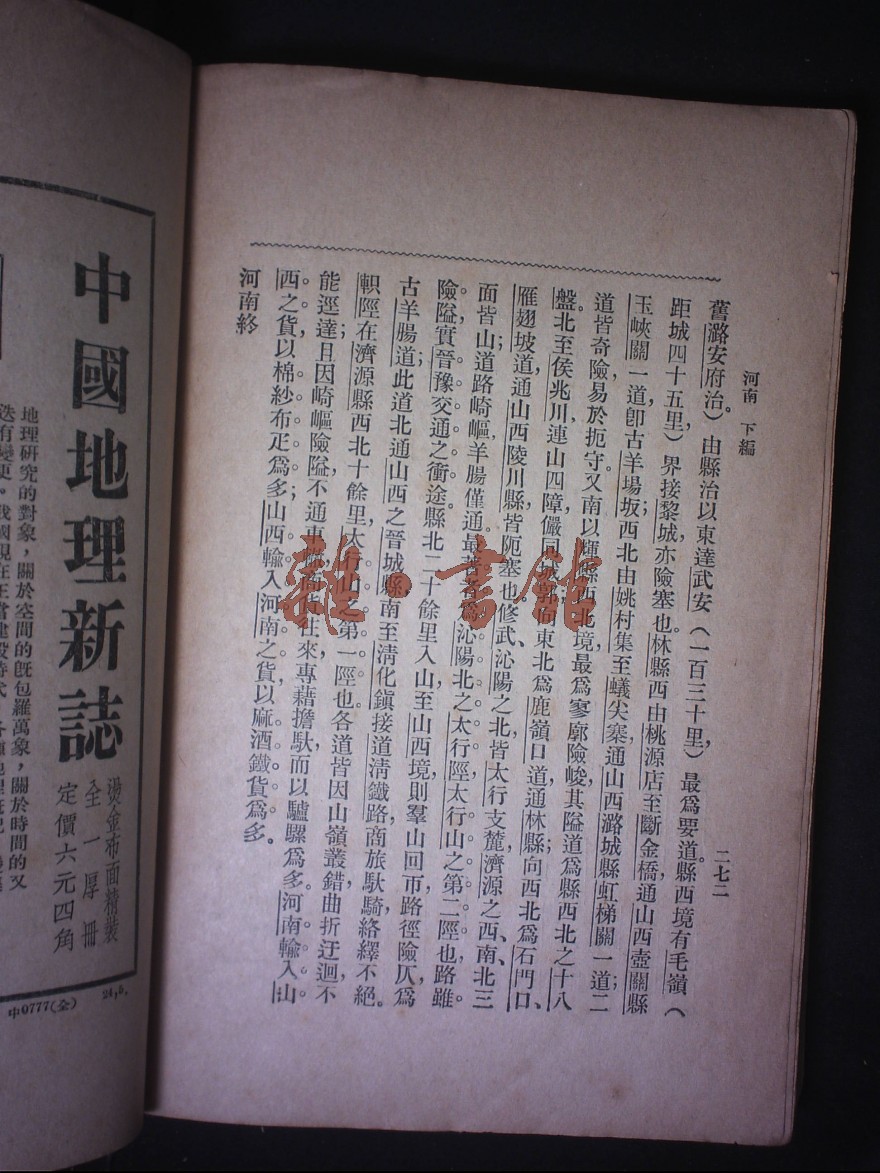 河南 下編
二七二
舊潞安府治。）由縣治以東達武安（一百三十里）最爲要道。縣西境有毛嶺（
距城四十五里）界接黎城，亦險塞也。林縣西由桃源店至斷金橋，通山西壺關縣
玉峽關一道，卽古羊場坂；西北由姚村集至蟻尖寨，通山西潞城縣虹梯關一道；二
道皆奇險，易於扼守。又南以輝縣西北境，最爲寥廓險峻，其隘道爲縣西北之十八
盤，北至侯兆川，連山四障，儼同城郭，
東北爲鹿嶺口，道通林縣；向西北爲石門口、
雁翅坡道，通山西陵川縣，皆阨塞也。修武、沁陽之北，皆太行支麓，濟源之西、南、北三
面皆山，道路崎嶇，羊腸僅通。最著者爲沁陽北之太行陘，太行山之第二陘也，路雖
險隘，實晉豫交通之衝途，縣北二十餘里入山，至山西境則羣山回帀，路徑險仄，爲
古羊腸道；此道北通山西之晉城縣，南至淸化鎭，接道淸鐵路，商旅馱騎，絡繹不絕。
軹陘在濟源縣西北十餘里，太行山之第一陘也。各道皆因山嶺叢錯，曲折迂迴，不
能逕達，且因崎嶇險隘，不通車
往來專藉擔馱，而以驢騾爲多。河南輸入山
西之貨，以棉紗布疋爲多；山西輸入河南之貨，以麻酒鐵貨爲多。
河南終
雜·書館
中國地理新誌
燙金布面精裝
全一厚冊
定價六元四角
地理研究的對象，關於空間的旣包羅萬象，關於時間的又
迭有變更。我國現在正當建設時代，
中0777(全) 24,5.